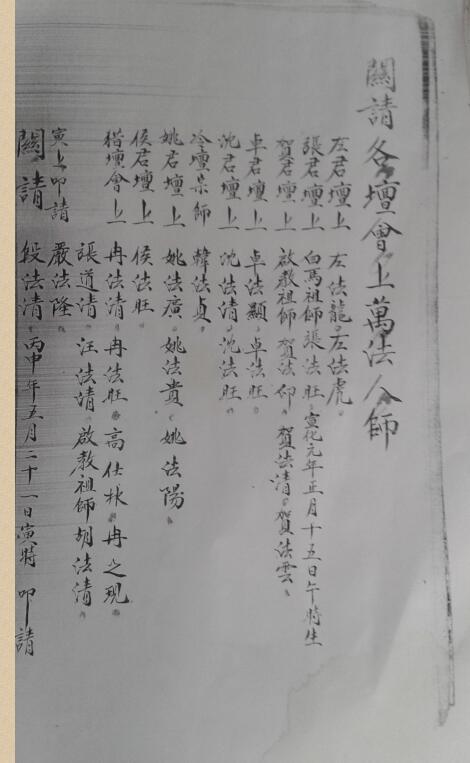 關請各壇會上萬法人師
左君壇上 左法龍。左法虎。
張君壇上 白馬祖師張法旺。宣化元年正月十五日午時生
賀君壇上 啟教祖師賀法仰。賀法清。賀法雲。
卓君壇上 卓法顯。卓法旺。
沈君壇上 沈法清。沈法旺。
冷壇宗師 韓法貞。
姚君壇上 姚法廣。姚法貴。姚法陽。
侯君壇上 侯法旺。
楷壇會上 冉法清。冉法旺。高仕林。冉之現。
張道清。汪法清。啟教祖師胡法清。
寅上叩請 嚴法隆。
關請 段法清。丙申年五月二十一日寅時 叩請